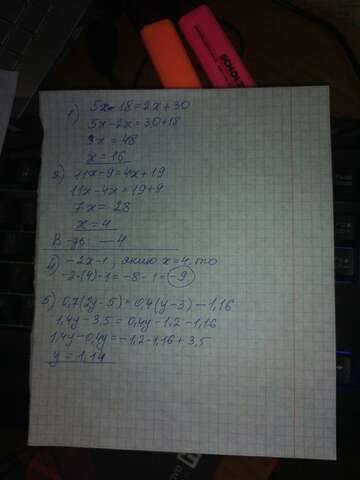 1) 5x-18=2x+30
5x-2x=30+18
3x=48
x=16
2) 11x-9=4x+19
11x-4x=19+9
7x=28
x=4
4) -2x-1, якщо x=4, то
-2·(4)-1=-8-1=-9
5) 0,7(2y-5)=0,4(y-3)-1,16
1,4y-3,5=0,4y-1,2-1,16
1,4y-0,4y=-1,2-1,16+3,5
y=1,14